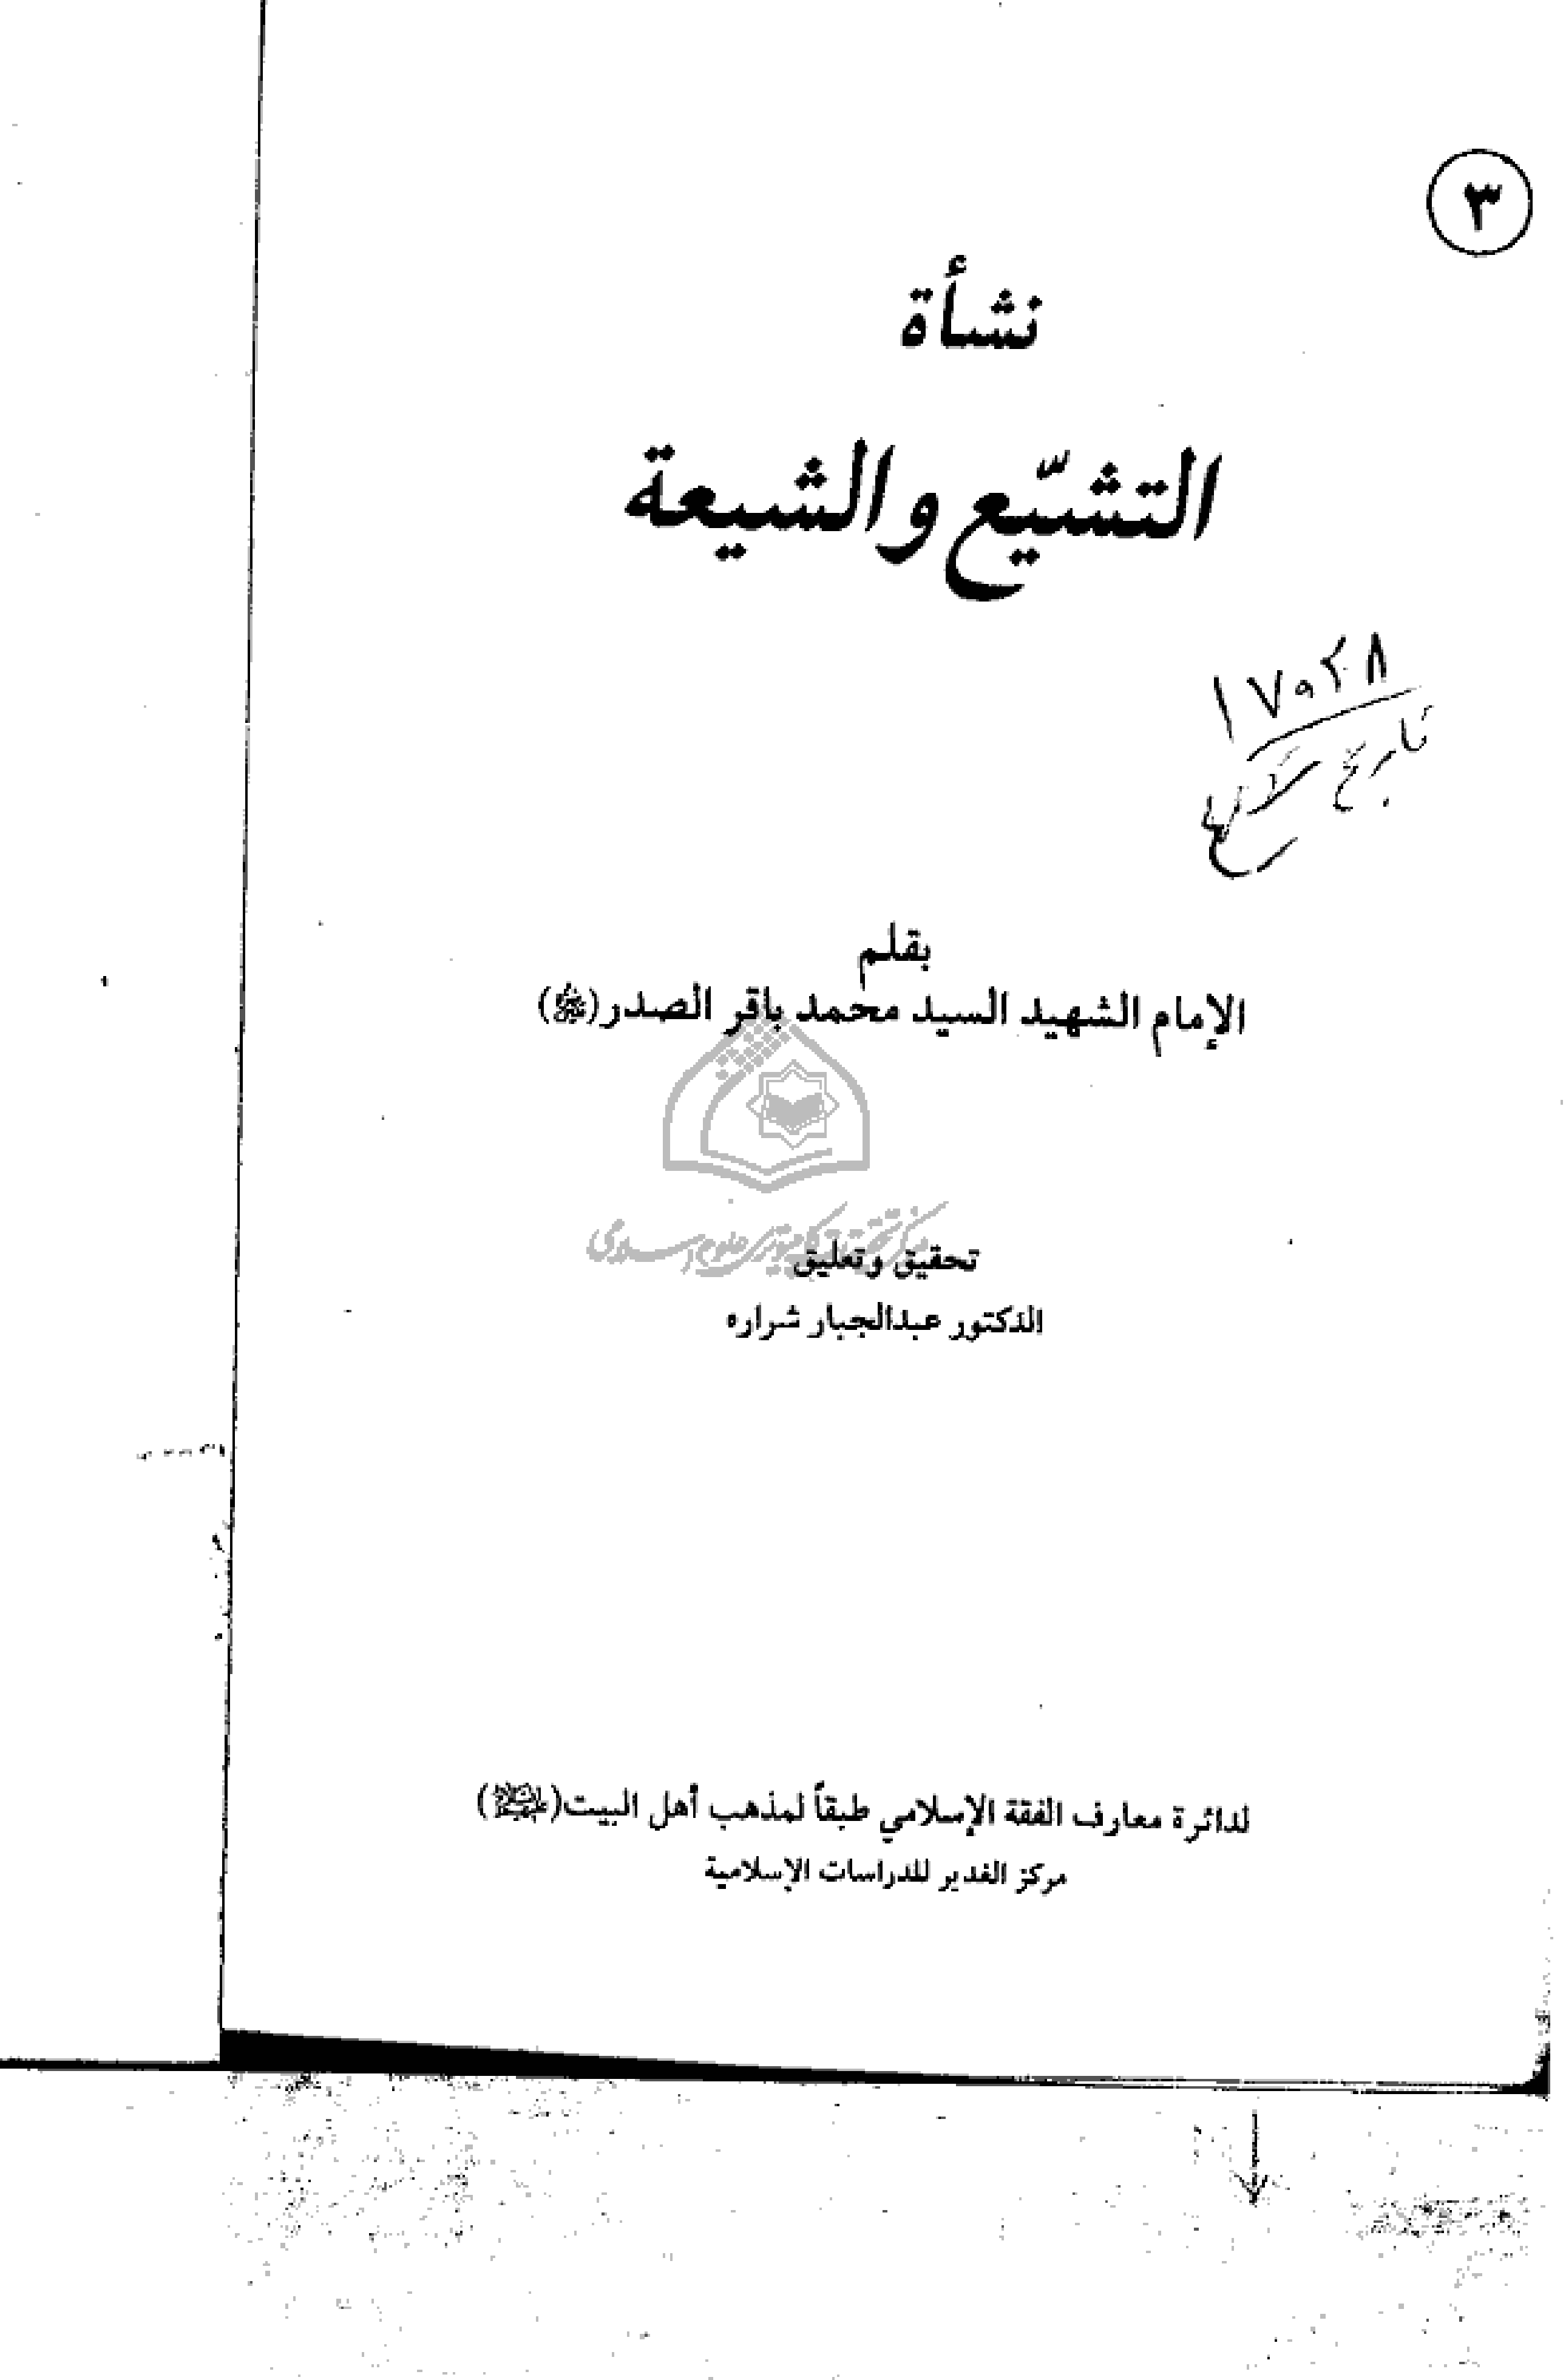 ٣
نشأة
التشيّع والشيعة
١٧٥٢٨
تاريخ
بقلم
الإمام الشهيد السيد محمد باقر الصدر
مركز تحقيقات كامپيوتری علوم اسلامی
تحقيق وتعليق
الدكتور عبدالجبار شراره
لدائرة معارف الفقة الإسلامي طبقاً لمذهب أهل البيت
مركز الغدير للدراسات الإسلامية